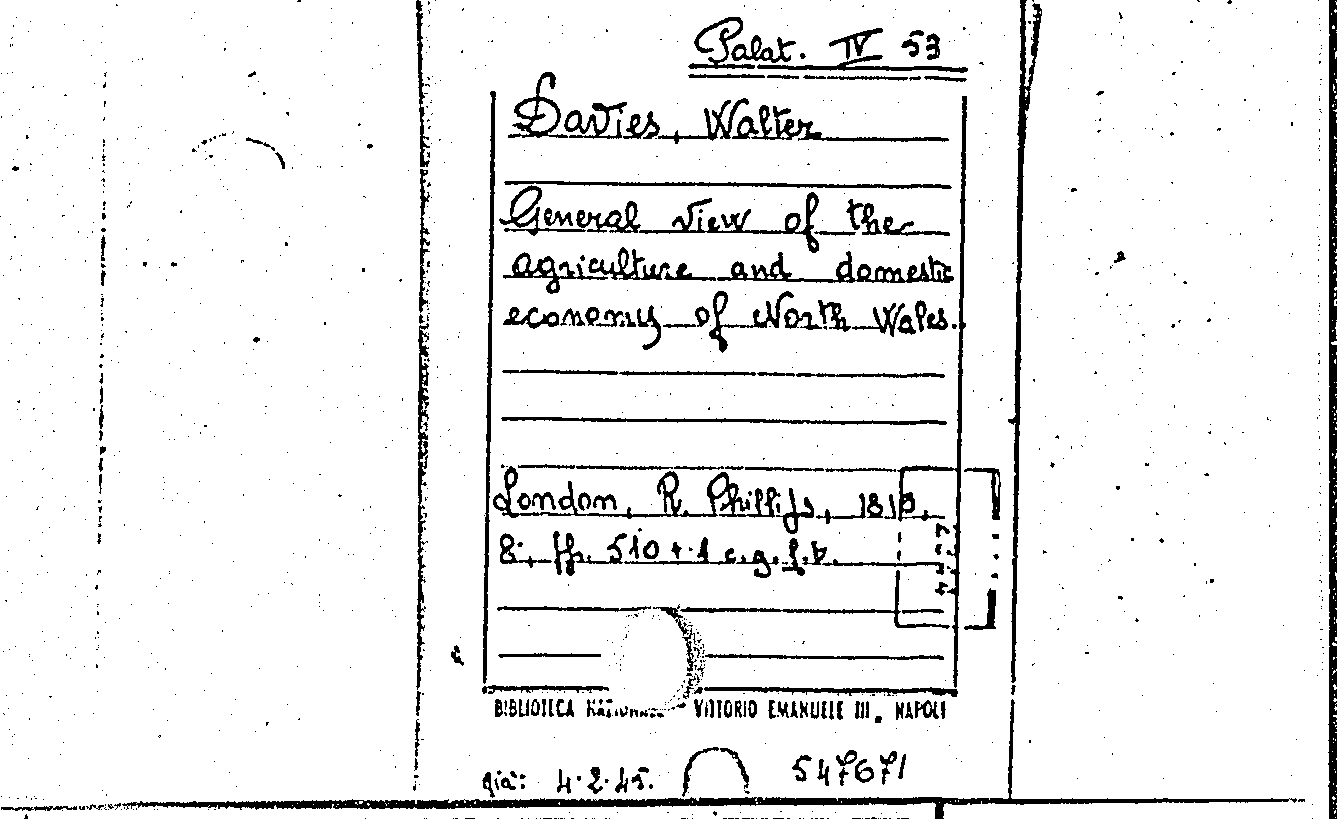 Palat. IV 53
Davies, Walter
General view of the
agriculture and domestic
economy of North Wales.
London, R. Phillips, 1813.
8°, pp. 510 + 1 c.g.f.t.
BIBLIOTECA NAZIONALE VITTORIO EMANUELE III. NAPOLI
già: 4.2.45. 547671